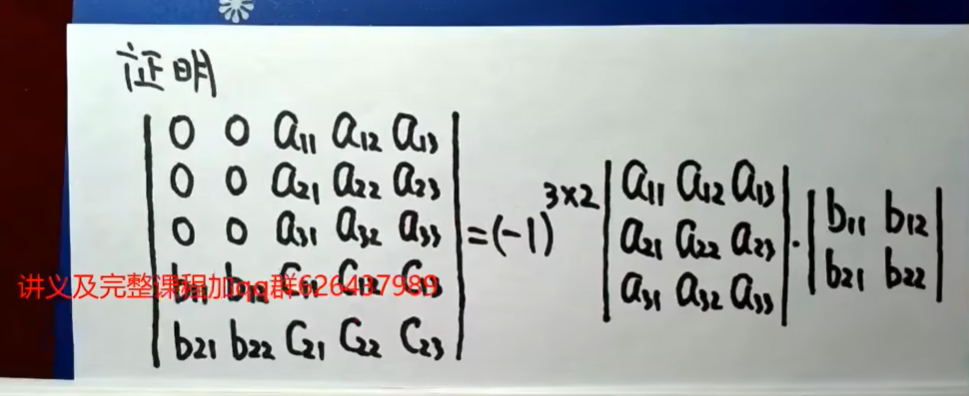 证明
0 0 a11 a12 a13
0 0 a21 a22 a23
0 0 a31 a32 a33
b11 b12 c11 c12 c13
b21 b22 c21 c22 c23
=(-1)^3×2
a11 a12 a13
a21 a22 a23
a31 a32 a33
·
b11 b12
b21 b22
讲义及完整课程加qq群626497989